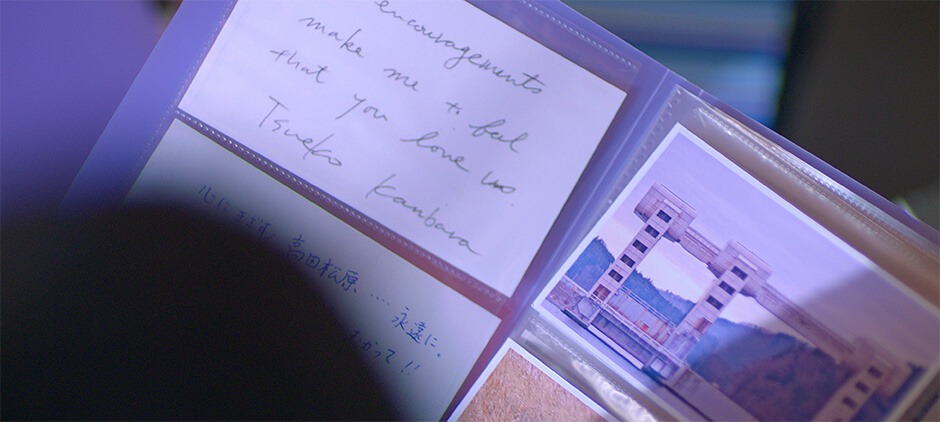 encouragements
make me to feel
that you love us.
Tsuneko Kanbara
高田松原....永遠に。